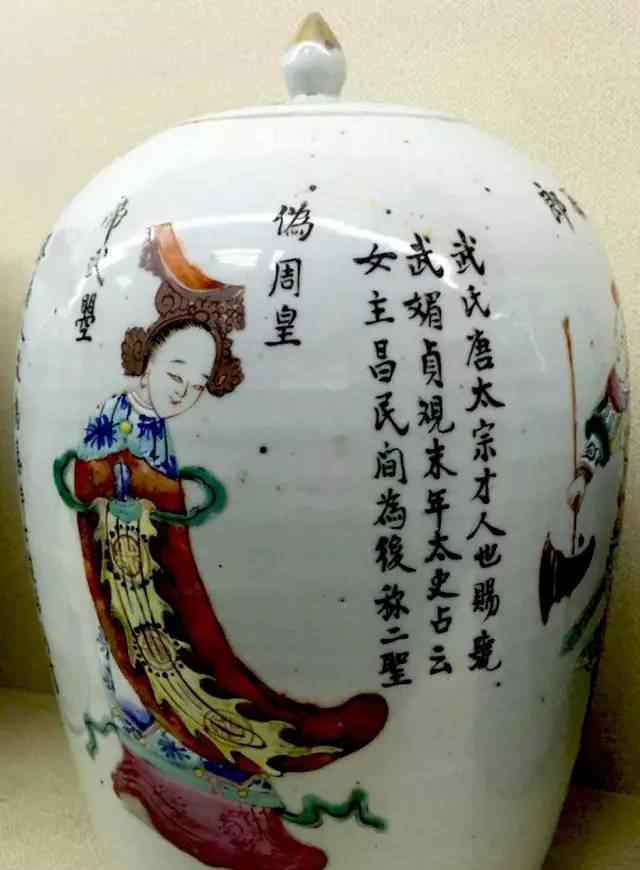 武氏唐太宗才人也賜號
武媚貞覌末年太史占云
女主昌民間為後称二聖
偽周皇
帝武曌